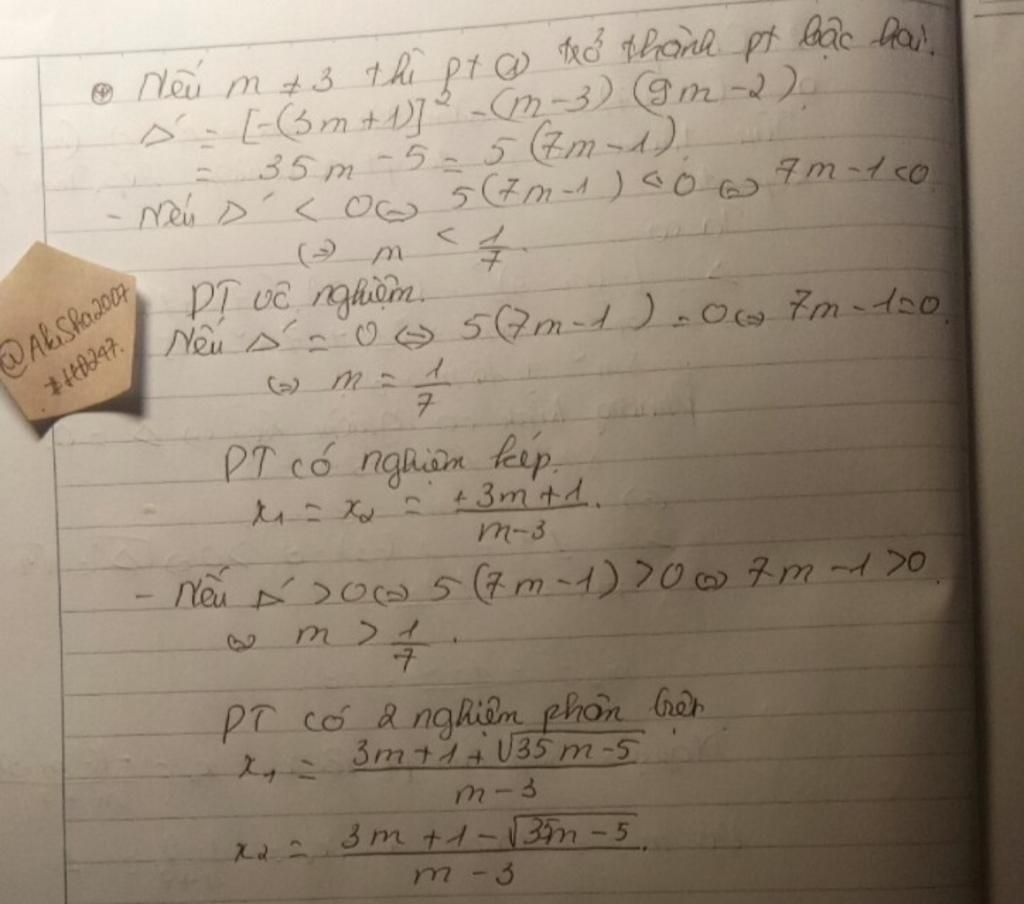 ⊕ Nếu m ≠ 3 thì pt ① trở thành pt bậc hai.
Δ' = [-(3m+1)]² - (m-3)(9m-2).
= 35m - 5 = 5(7m-1).
- Nếu Δ' < 0 ⇔ 5(7m-1) < 0 ⇔ 7m-1<0
⇔ m < 1/7.
PT vô nghiệm.
@AkiSho2007
Nếu Δ' = 0 ⇔ 5(7m-1) = 0 ⇔ 7m-1=0
⇔ m = 1/7
PT có nghiệm kép.
x₁ = x₂ = +3m+1/m-3.
- Nếu Δ' > 0 ⇔ 5(7m-1) > 0 ⇔ 7m-1>0.
⇔ m > 1/7.
PT có 2 nghiệm phân biệt
x₁ = 3m+1+√35m-5/m-3
x₂ = 3m+1-√35m-5/m-3.